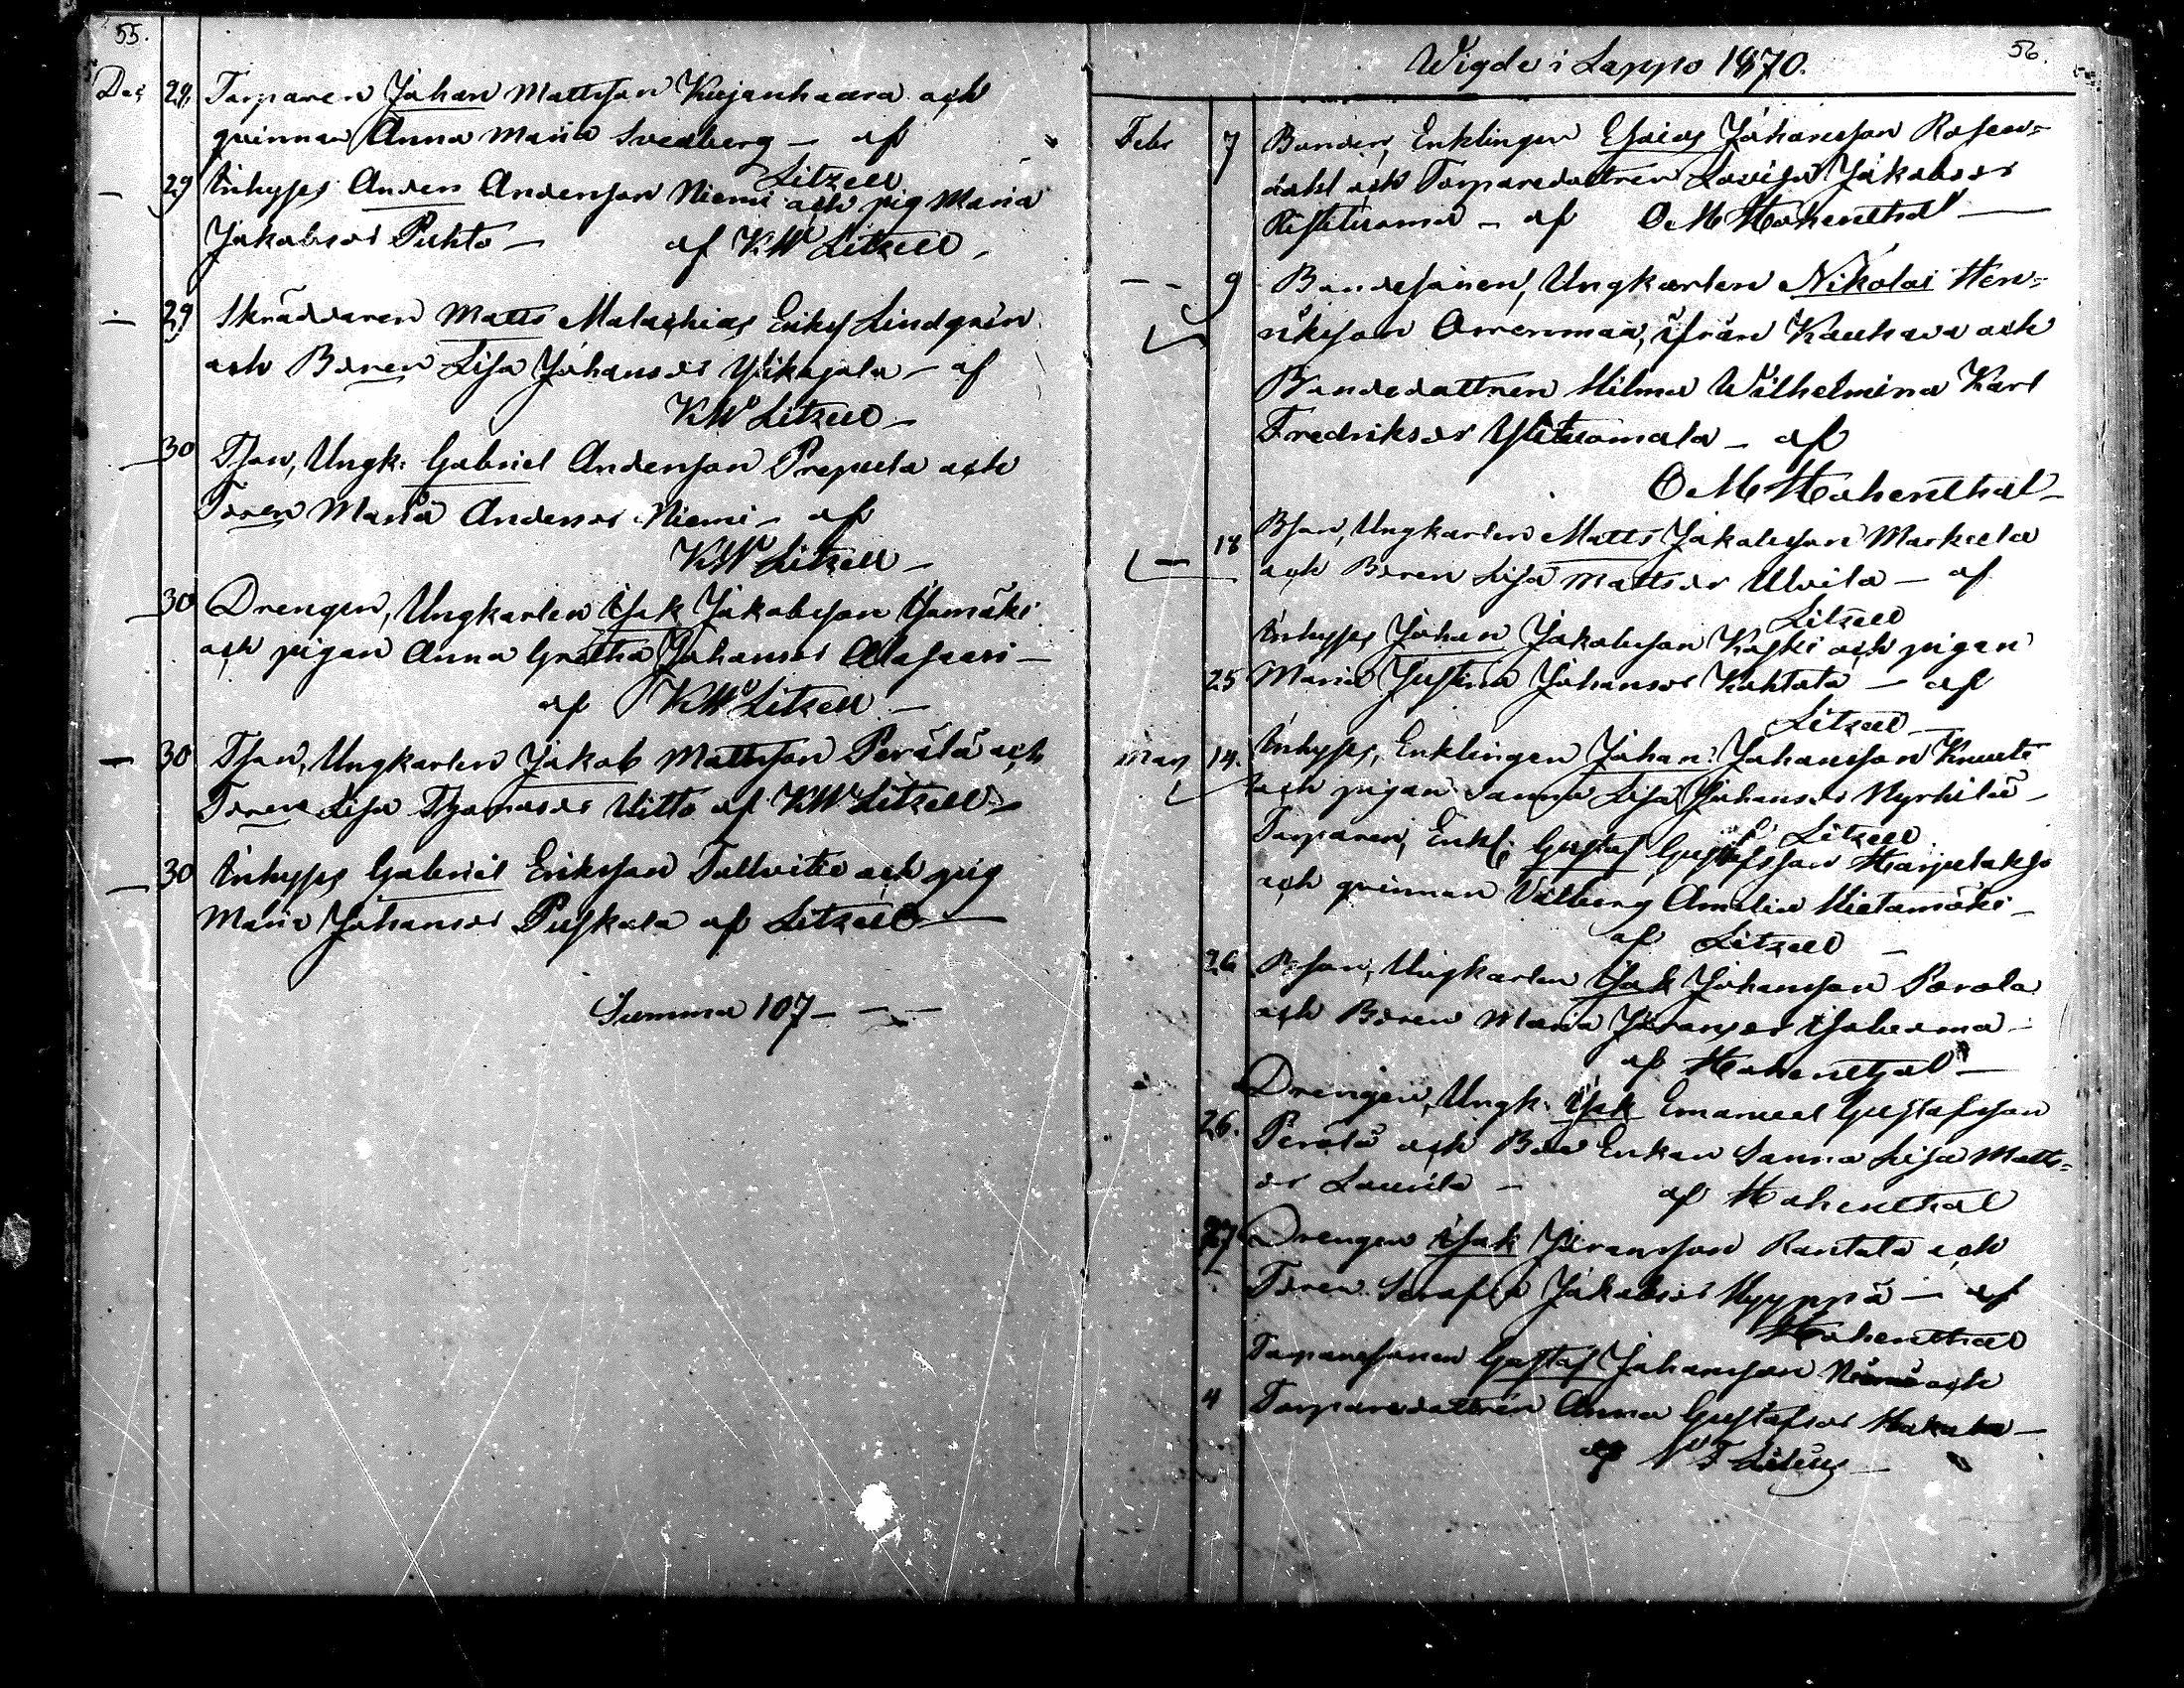 55.
Dec 29. Torparen Johan Mattsson Kujanhaara och
qvinnan Anna Maria Svedberg – af
Litzell
— 29 Inhyses Anders Andersson Niemi och pig Maria
Jakobsdr Puhto – af KW Litzell –
— 29 Skräddaren Matts Malachias Eriks Lindgrén
och Bdren Lisa Johansdr Ylikojola – af
KW Litzell –
30 Tson, Ungk: Gabriel Andersson Prepula och
Tdren Maria Andersdr Niemi – af
KW Litzell –
30 Drengen, Ungkarlen Isak Jakobsson Isomäki
och pigan Anna Gretha Johansdr Alasaari –
af KW Litzell –
— 30 Tson, Ungkarlen Jakob Mattsson Perälä och
Tdren Lisa Thomasdr Uitto af KW Litzell –
— 30 Inhyses Gabriel Eriksson Tallvitie och pig
Maria Johansdr Puskala af Litzell –
Summa 107 – – –
56.
Wigde i Lappo 1870.
Febr 7 Bonden, Enklingen Esaias Johansson Rosen=
dahl och Torparedottren Lovisa Jakobsdr
Ristiluoma – af O M Hohenthal –
– – 9 Bondesonen, Ungkarlen Nikolai Hen=
riksson Orrenmaa, ifrån Kauhava och
Bondedottren Hilma Wilhelmina Karl
Fredriksdr Ylituomala – af
O M Hohenthal –
— 18 Bson, Ungkarlen Matts Jakobsson Markula
och Bdren Lisa Mattsdr Ulvila – af
Litzell
Inhyses Johan Jakobsson Koski och pigan
25 Maria Justina Johansdr Kohtala – af
Litzell –
Mars 14. Inhyses, Enklingen Johan Johansson Knuuti
och pigan Sanna Lisa Johansdr Nyrhilä –
af Litzell
Torparen, Enkl: Gustaf Gustafsson Harjulakso
och qvinnan Valborg Amalia Hietamäki –
af Litzell –
26 Bson, Ungkarlen Isak Johansson Porola
och Bdren Maria Göransdr Isoluoma –
af Hohenthal –
Drengen, Ungk: Isak Emanuel Gustafsson
26. Perälä och Bde Enkan Sanna Lisa Matts=
dr Laurila – af Hohenthal
27 Drengen Isak Göransson Rantala och
Tdren Serafia Jakobsdr Hyyppä – af
Hohenthal
Torparesonen Gustaf Johansson och
4 Torparedottren Anna Gustafsdr Hakala –
af